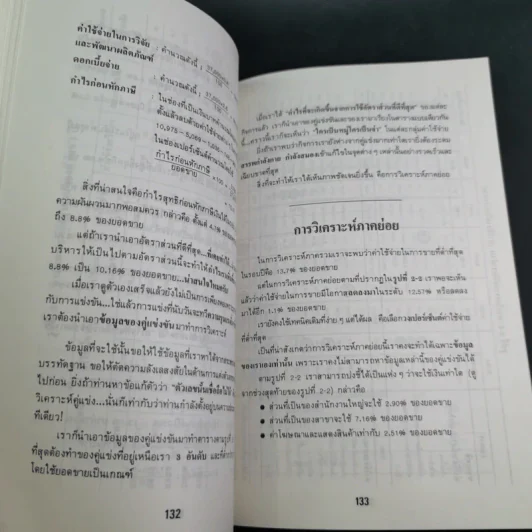 ค่าใช้จ่ายในการวิจัย
และพัฒนาผลิตภัณฑ์ : คำนวณดังนี้ :
ดอกเบี้ยจ่าย : คำนวณดังนี้ :
กำไรก่อนหักภาษี : ในช่องที่เป็นเงินบาท
ตั้งแล้วลบด้วยค่าใช้จ่าย
10,975 - 5,089 - 1,505
ในช่องเปอร์เซ็นต์คำนวณ
กำไรก่อนหักภาษี × 100
สิ่งที่น่าสนใจคือกำไรสุทธิก่อนหักภาษีนั้น
ความผันผวนมากพอสมควร กล่าวคือ ตั้งแต่ 4.1%
ถึง 8.8% ของยอดขาย
แต่ถ้าเรานำเอาอัตราส่วนที่ดีที่สุด...
บริหารให้เป็นไปตามอัตราส่วนนี้จะทำให้
8.8% เป็น 10.16% ของยอดขาย...น่าสนใจไหมครับ
เมื่อเราดูตัวเองเสร็จแล้วยังไม่เป็นการเพียงพอ
กับการแข่งขัน...ใช่แล้วการแข่งที่นับวันจะทวีความ
เราต้องนำเอาข้อมูลของคู่แข่งขันมาทำการวิเคราะห์
ข้อมูลที่จะใช้นั้นขอให้ใช้ข้อมูลที่เราหาได้จาก
บรรทัดฐาน ขอให้ตัดความลังเลสงสัยในด้านการแต่ง
ไปก่อน ยิ่งถ้าท่านหาข้อแก้ตัวว่า "ตัวเลขนั้นเชื่อถือไม่ได้
วิเคราะห์คู่แข่ง...นั่นก็เท่ากับว่าท่านกำลังตั้งอยู่บน
ทีเดียว!
เราก็นำเอาข้อมูลของคู่แข่งขันมาทำตารางตามรูปที่
ที่สุดต้องทำของคู่แข่งที่อยู่เหนือเรา 3 อันดับ และที่ต่ำกว่า
โดยใช้ยอดขายเป็นเกณฑ์
132
เมื่อเราได้ "กำไรที่จะเกิดขึ้นจากการใช้อัตราส่วนที่ดีที่สุด" ของแต่ละ
กิจการแล้ว เราก็นำเอาของคู่แข่งขันและของเรามาเรียงในตารางแบบเดียวกัน
นี้...คราวนี้เราก็จะเห็นว่า "ใครเป็นหมู่ใครเป็นจ่า" ในแต่ละกลุ่มค่าใช้จ่าย
สิ่งที่จะทำให้เราได้เห็นภาพชัดเจนยิ่งขึ้น คือการวิเคราะห์ภาคย่อย
การวิเคราะห์ภาคย่อย
ในการวิเคราะห์ภาครวมเราจะพบว่าค่าใช้จ่ายในการขายที่ต่ำที่สุด
ในรอบปีคือ 13.7% ของยอดขาย
แต่ในการวิเคราะห์ภาคย่อยตามที่ปรากฏในรูปที่ 2-2 เราพอจะเห็น
แล้วว่าค่าใช้จ่ายในการขายมีโอกาสลดลงมาในระดับ 12.57% หรือลดลง
มาได้อีก 1.1% ของยอดขาย
เรายังคงใช้เทคนิคเดิมที่ง่าย ๆ แต่ได้ผล คือเลือกวงเปอร์เซ็นต์ค่าใช้จ่าย
ที่ต่ำที่สุด
เป็นที่น่าสังเกตว่าการวิเคราะห์ภาคย่อยนี้เราคงจะทำได้เฉพาะข้อมูล
ของเราเองเท่านั้น เพราะเราคงไม่สามารถหาข้อมูลเหล่านี้ของคู่แข่งขันได้
ตามรูปที่ 2-2 เราสามารถบ่งชี้ได้เป็นแห่ง ๆ ว่าจะใช้เงินเท่าใด (ดูที่
จากช่วงสุดท้ายของรูปที่ 2-2) กล่าวคือ
● ส่วนที่เป็นของสำนักงานใหญ่จะใช้ 2.90% ของยอดขาย
● ส่วนที่เป็นของสาขาจะใช้ 7.16% ของยอดขาย
● ค่าโฆษณาและแสดงสินค้าเท่ากับ 2.51% ของยอดขาย
133